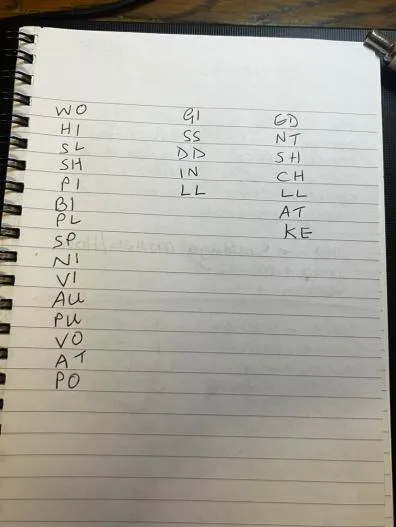 WO
HI
SL
SH
PI
BI
PL
SP
NI
VI
AU
PU
VO
AT
PO
GI
SS
DD
IN
LL
ED
NT
SH
CH
LL
AT
KE